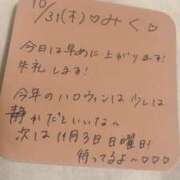 10/31(木)♡みく♡
今日は早めに上がります!
失礼します!
今年のハロウィンは少しは
静かだといいな〜
次は11月3日日曜日!
待ってるよ〜♡♡♡